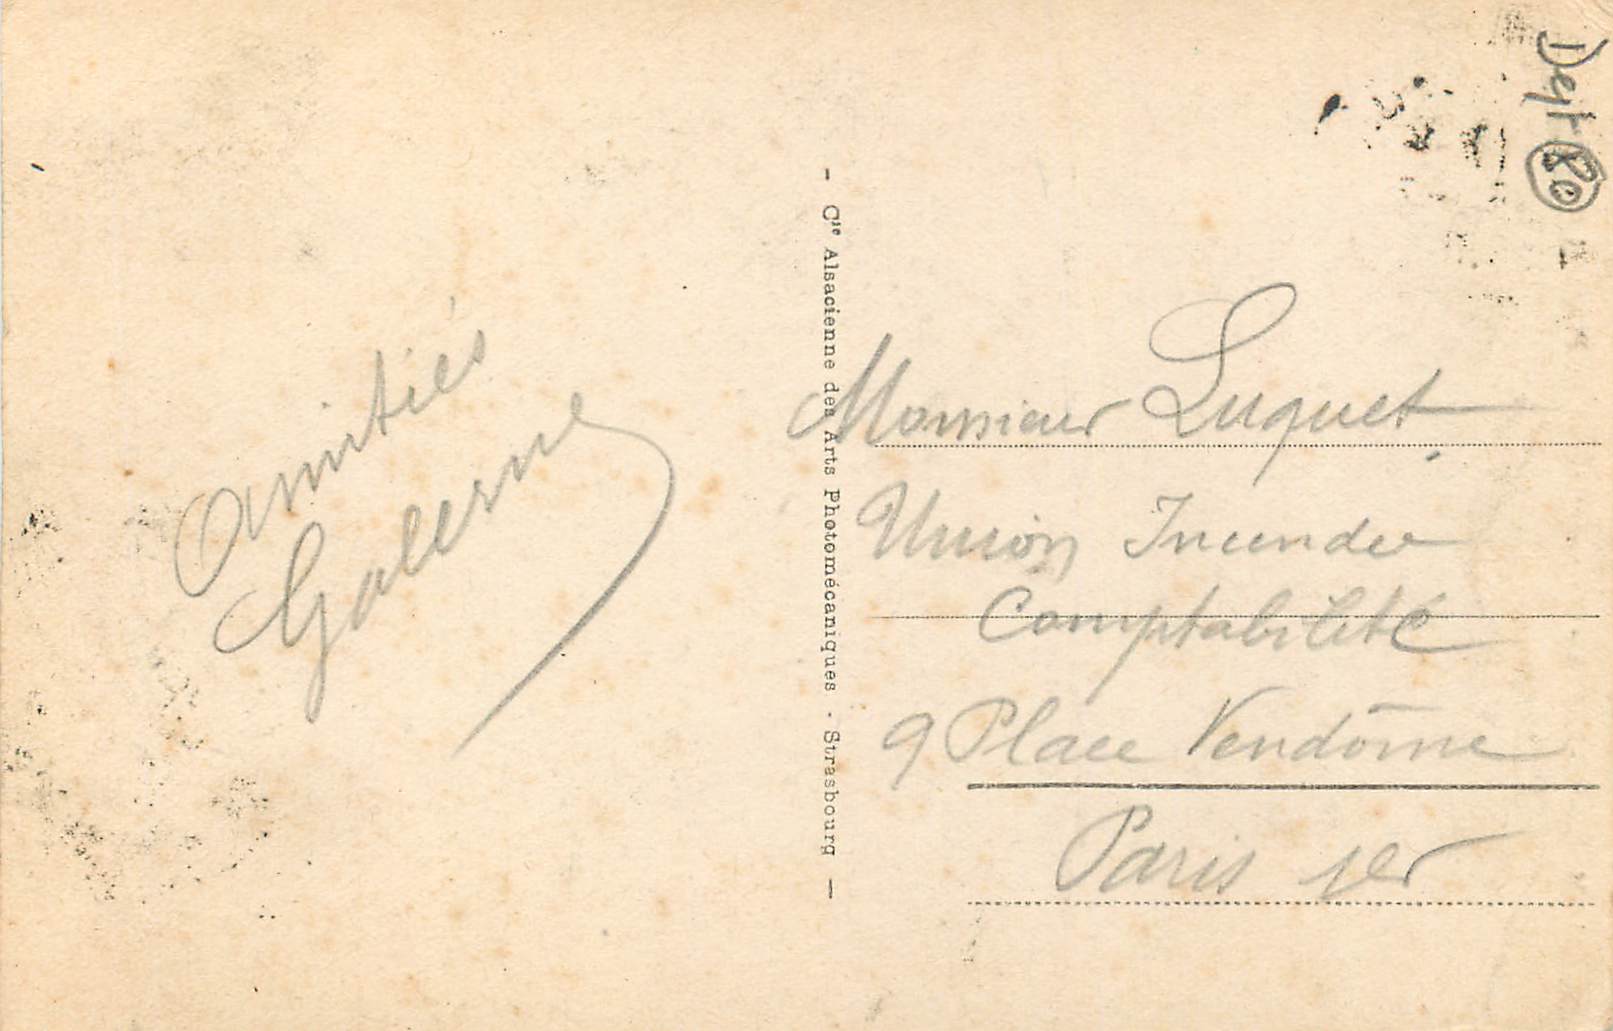 Dept 80
Amitiés
Galerne
- Cie Alsacienne des Arts Photomécaniques - Strasbourg -
Monsieur Luquet
Union Incendie
Comptabilité
9 Place Vendôme
Paris 1er